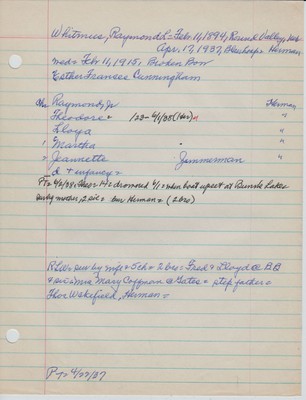 Whitmire, Raymond L = Feb. 11, 1894, Round Valley, Neb
Apr. 17, 1937, Herman
med = Feb. 11, 1915, Broken Bow
Esther Frances Cunningham
Raymond, Jr Herman
Theodore = 123 - 4/1/38 (Her) "
Lloyd "
Martha "
Jeannette = Jimmerman "
d + infancy =
PT = 4/2/38 = Theo = 14 = drowned 4/1 = when boat upset at Burnle Lakes
Surv by mother, 2 sis = bur Herman = (2 bro)
R L is surv by wife + 5ch + 2 bro = Fred + Lloyd @ B.B
+ sis = Mrs Mary Coffman @ Gates + step father =
Thor Wakefield, Herman =
PT = 4/22/37